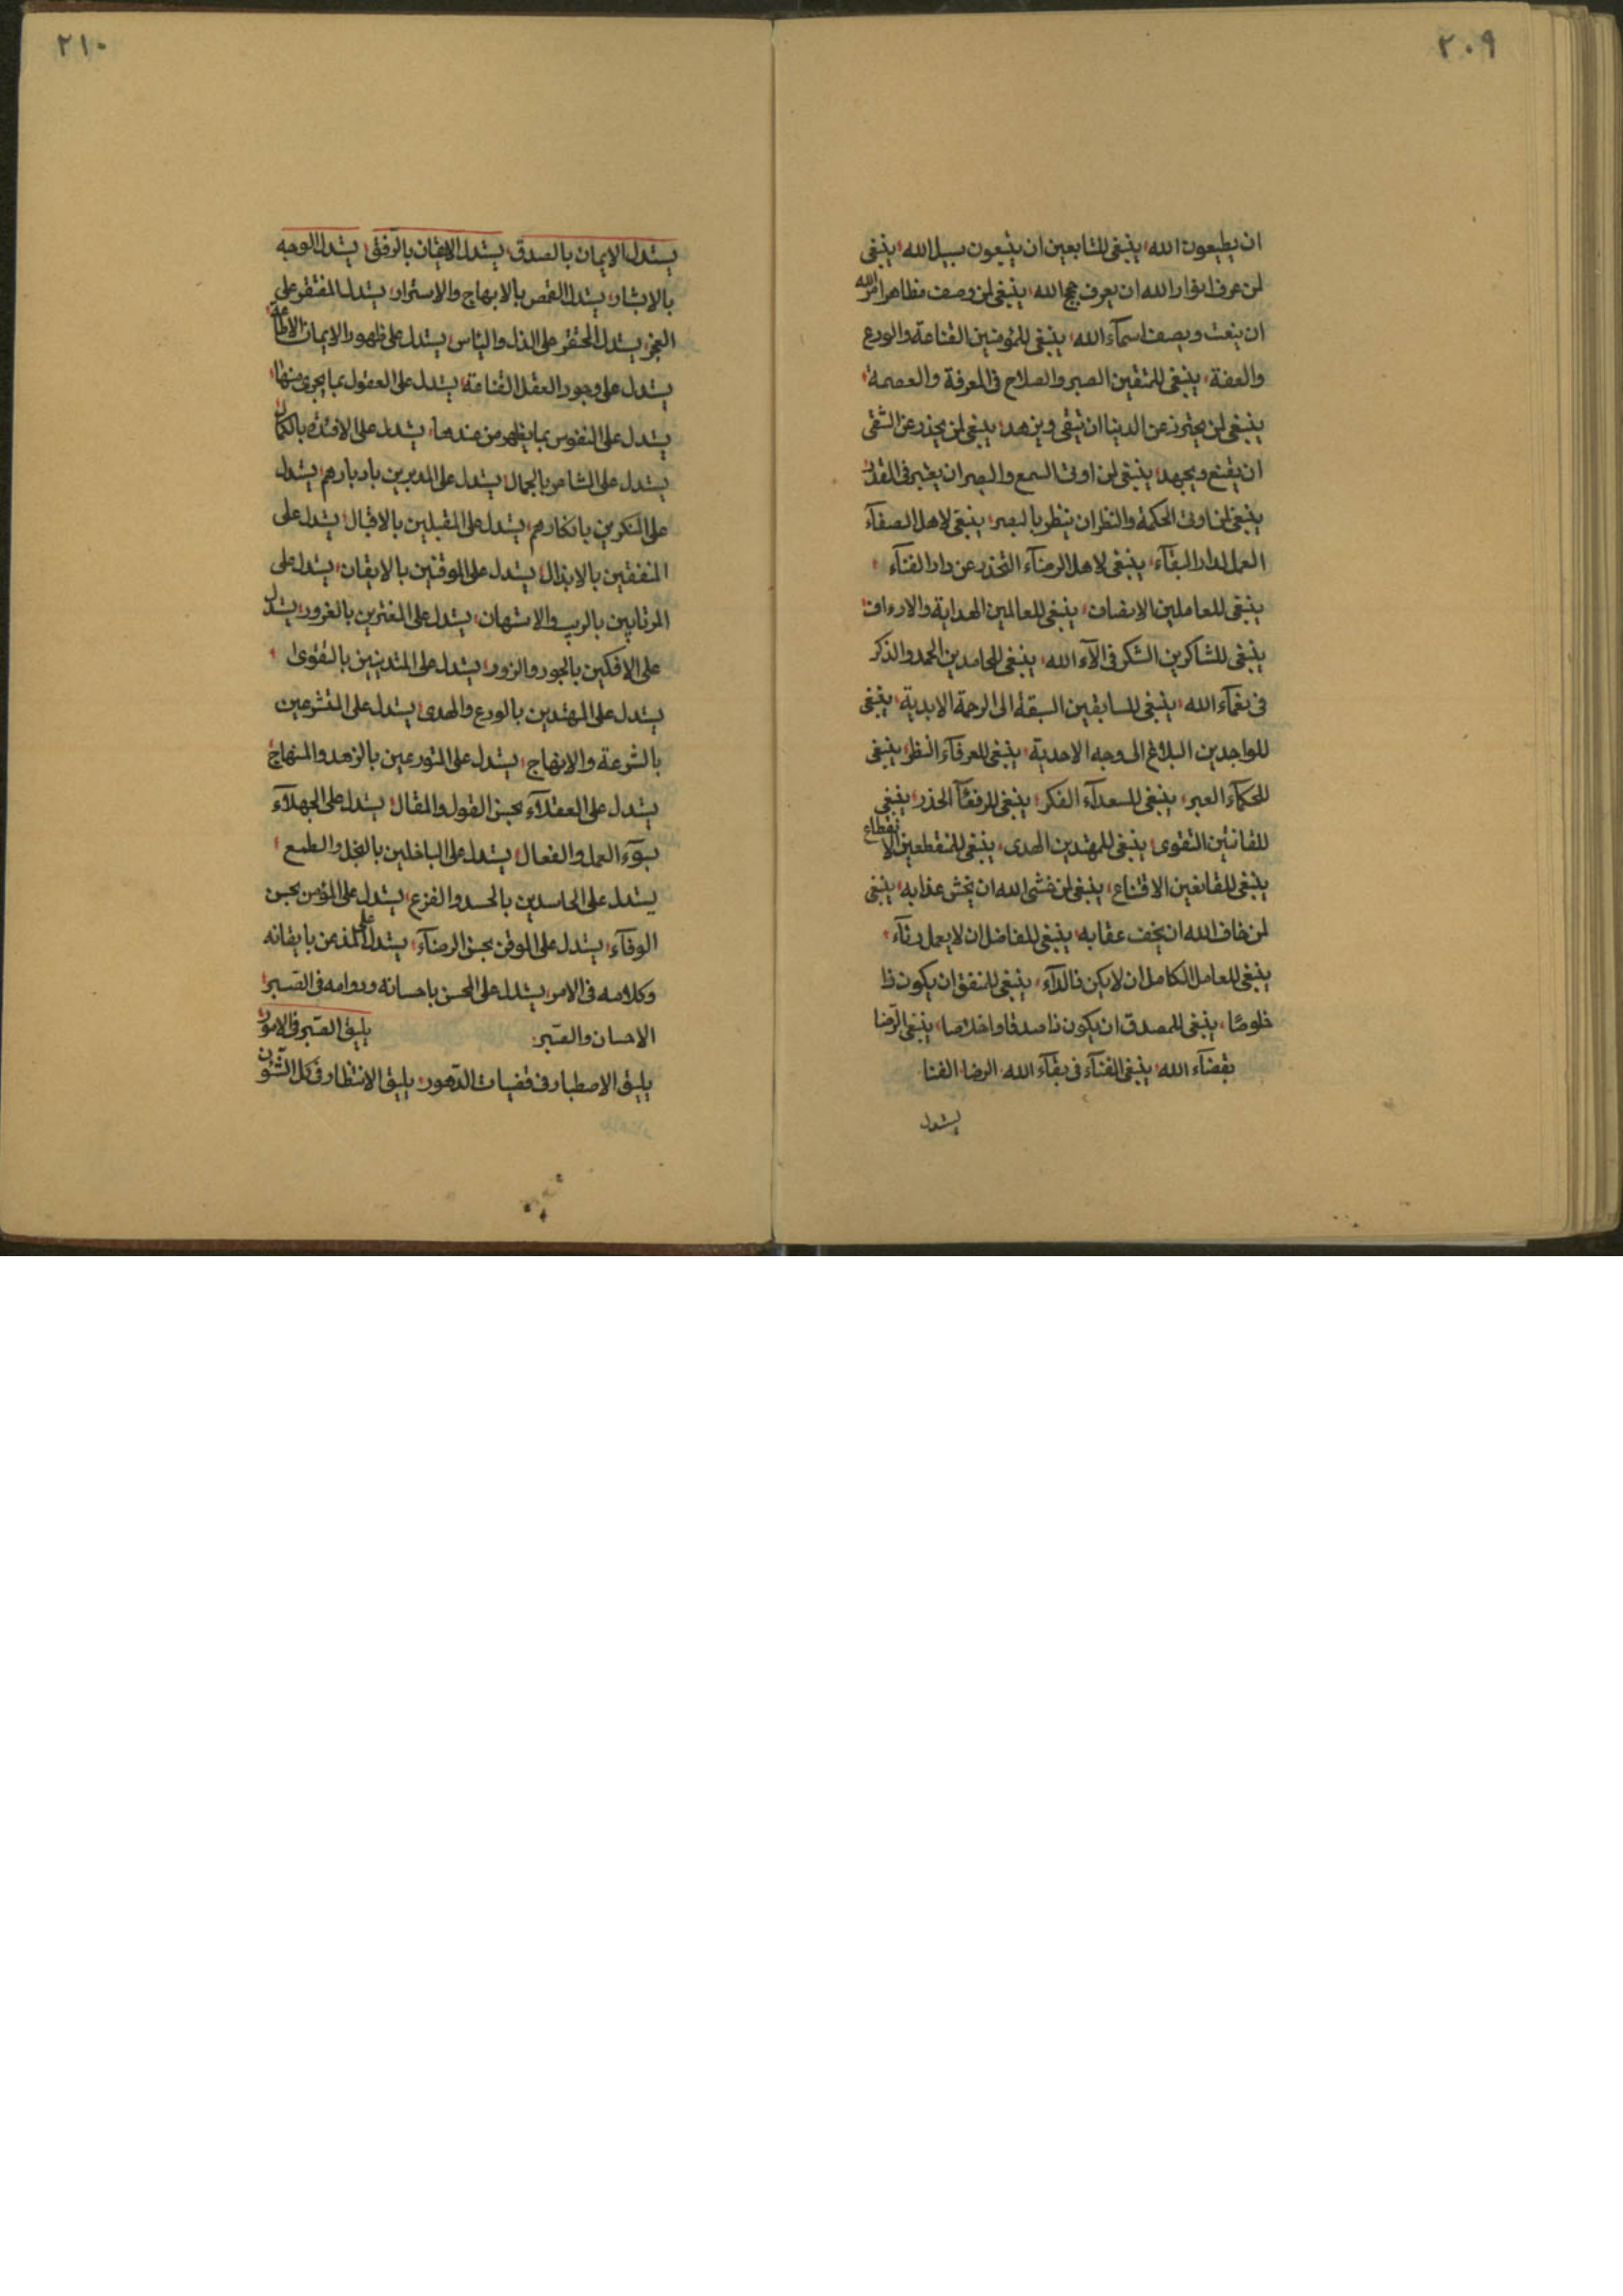 ٢٠٩
ان يطيعون الله، ينبغى للتابعين ان يتبعون سبيل الله، ينبغى
لمن عرف انوار الله ان يعرف حجج الله، ينبغى لمن وصف مظاهر امر الله
ان ينعت ويصف اسمآء الله، ينبغى للمؤمنين القناعة والورع
والعفة، ينبغى للمتقين الصبر والصلاح فى المعرفة والعصمة،
ينبغى لمن يحترز عن الدنيا ان يتقى ويزهد، ينبغى لمن يحذر عن الشقى
ان يقنع ويجهد، ينبغى لمن اوتى السمع والبصر ان يعتبر فى القدر
ينبغى لمن اوتى الحكمة والنظر ان ينظر بالبصر، ينبغى لاهل الصفآء
العمل لدار البقآء، ينبغى لاهل الرضآء التحذر عن دار الفنآء،
ينبغى للعاملين الانصاف، ينبغى للعالمين الهداية والارداف،
ينبغى للشاكرين الشكر فى الآء الله، ينبغى للحامدين الحمد والذكر
فى نعمآء الله، ينبغى للسابقين السبقة الى الرحمة الابدية، ينبغى
للواجدين البلاغ الى وجه الاحدية، ينبغى للعرفآء النظر، ينبغى
للحكمآء العبر، ينبغى للسعدآء الفكر، ينبغى للرفقآء الحذر، ينبغى
للقانتين التقوى، ينبغى للمهتدين الهدى، ينبغى للمنقطعين الانقطاع
ينبغى للقانعين الاقتناع، ينبغى لمن خشى الله ان يخش عذابه، ينبغى
لمن خاف الله ان يخف عقابه، ينبغى للفاضل ان لا يعمل رئآء،
ينبغى للعامل الكامل ان لا يكن فالدآء، ينبغى للمنفق ان يكون ذا
خلوصًا، ينبغى للمصدق ان يكون ذا صدقا واخلاصا، ينبغى الرّضا
بقضآء الله، ينبغى الفنآء فى بقآء الله. الرضا. الفنا
يستدل
٢١٠
يستدل الايمان بالصدق، يستدل الايقان بالرفق، يستدل الوجه
بالابشار، يستدل القمص بالابهاج والاسترار، يستدل المفتقر على
العجز، يستدل المحتقر على الذل والياس، يستدل على ظهور الايمان الاطاعة
يستدل على وجود العقل القناعة، يستدل على العقول بما يجرى منها،
يستدل على النفوس بما يظهر من عندها، يستدل على الافئدة بالكمال
يستدل على المشاعر بالجمال، يستدل على المدبرين بادبارهم، يستدل
على المنكرين بانكارهم، يستدل على المقبلين بالاقبال، يستدل على
المنفقين بالابذال، يستدل على الموقنين بالايقان، يستدل على
المرتابين بالريب والاستهان، يستدل على المغترين بالغرور، يستدل
على الافكين بالجور والزور، يستدل على المتدينين بالتقوى،
يستدل على المهتدين بالورع والهدى، يستدل على المتشرعين
بالشرعة والابتهاج، يستدل على المتورعين بالزهد والمنهاج
يستدل على العقلآء بحسن القول والمقال، يستدل على الجهلآء
بسوء العمل والفعال، يستدل على الباخلين بالبخل والطمع،
يستدل على الحاسدين بالحسد والفزع، يستدل على المؤمن بحسن
الوفآء، يستدل على الموقن بحسن الرضآء، يستدل على المذعن بايقانه
وكلامه فى الامر، يستدل على المحسن باحسانه ودوامه فى الصبر،
الاحسان والصبر. يليق الصبر فى الامور
يليق الاصطبار فى قضيات الدهور، يليق الانتظار فى كل الشئون